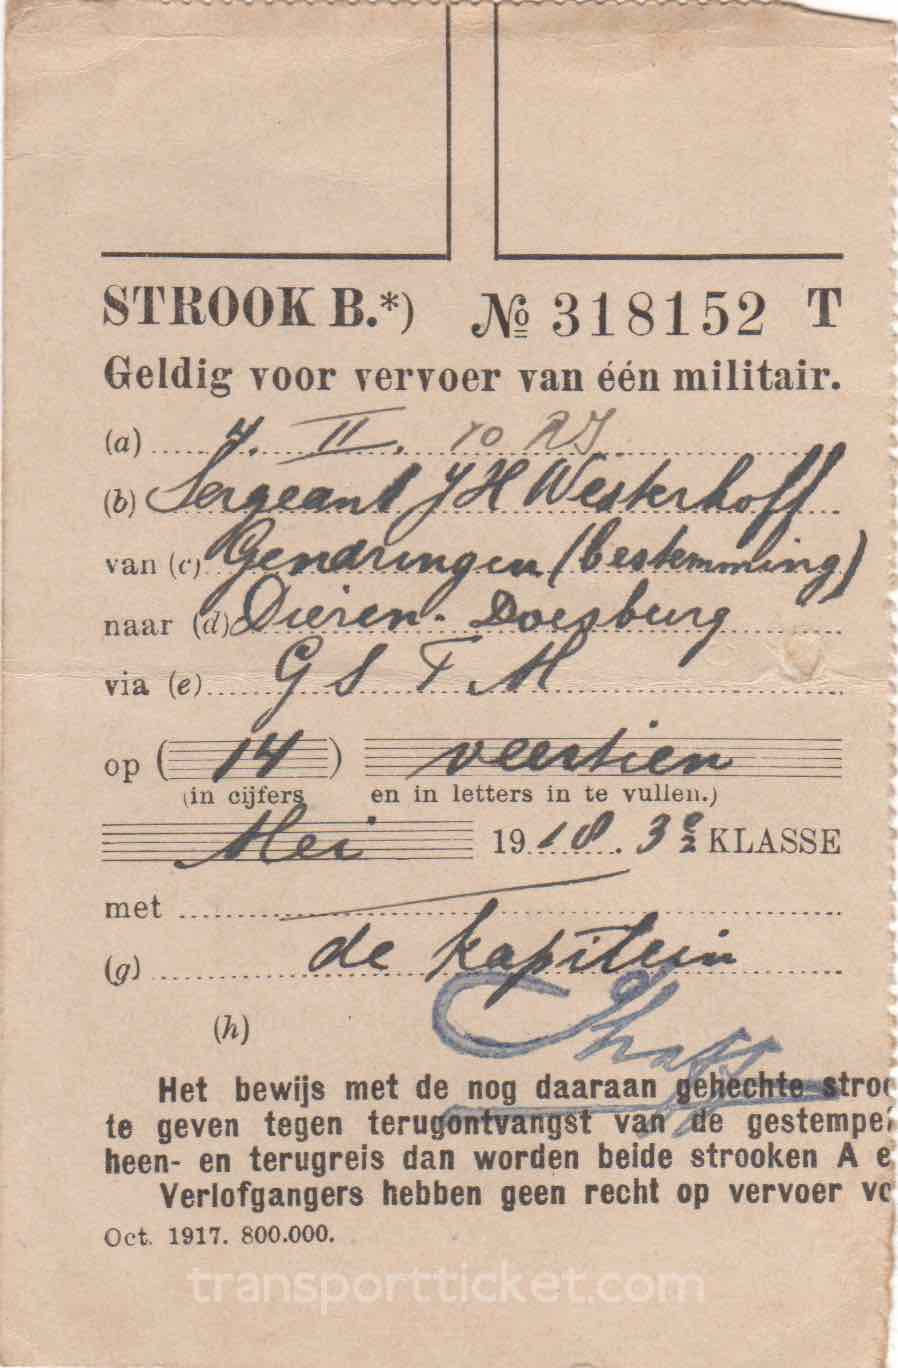 STROOK B.*) № 318152 T
Geldig voor vervoer van één militair.
(a) 4. II. 10 RI
(b) Sergeant J H Westerhoff
van (c) Gendringen (bestemming)
naar (d) Dieren-Doesburg
via (e) G S T M
op (14) veertien
(in cijfers en in letters in te vullen.)
Mei 1918. 3e/2 KLASSE
met
(g) de kapitein
(h)
Het bewijs met de nog daaraan gehechte stroo
te geven tegen terugontvangst van de gestempel
heen- en terugreis dan worden beide strooken A e
Verlofgangers hebben geen recht op vervoer vo
Oct. 1917. 800.000.
transportticket.com